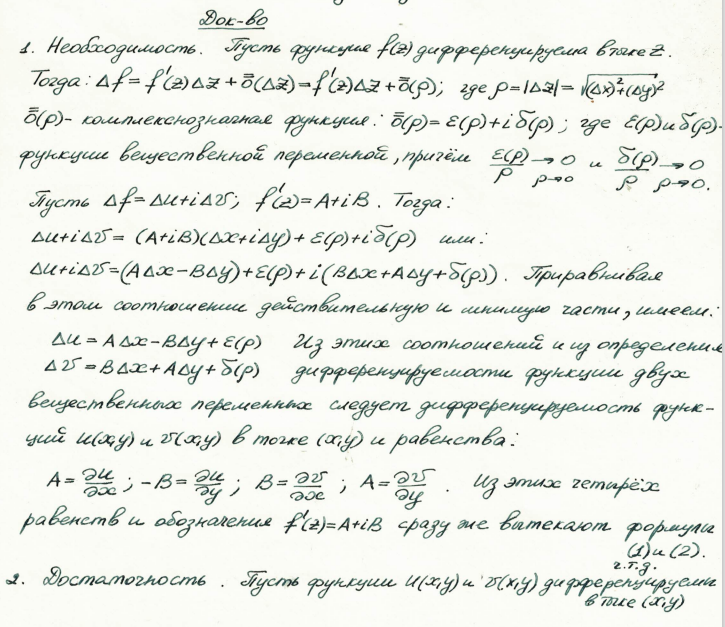 Док-во
1. Необходимость. Пусть функция f(z) дифференцируема в точке z.
Тогда: Δf = f'(z)Δz + ō̄(Δz) = f'(z)Δz + ō̄(ρ); где ρ = |Δz| = √(Δx)²+(Δy)²
ō̄(ρ)- комплекснозначная функция: ō̄(ρ) = ε(ρ) + i δ(ρ); где ε(ρ) и δ(ρ)-
функции вещественной переменной, причём ε(ρ)/ρ → 0 ρ→0 и δ(ρ)/ρ → 0 ρ→0.
Пусть Δf = Δu + iΔv; f'(z) = A + iB. Тогда:
Δu + iΔv = (A+iB)(Δx+iΔy) + ε(ρ) + iδ(ρ) или:
Δu + iΔv = (AΔx - BΔy) + ε(ρ) + i(BΔx + AΔy + δ(ρ)). Приравнивая
в этом соотношении действительную и мнимую части, имеем:
Δu = AΔx - BΔy + ε(ρ) Из этих соотношений и из определения
Δv = BΔx + AΔy + δ(ρ) дифференцируемости функции двух
вещественных переменных следует дифференцируемость функ-
ций u(x,y) и v(x,y) в точке (x,y) и равенства:
A = ∂u/∂x; -B = ∂u/∂y; B = ∂v/∂x; A = ∂v/∂y. Из этих четырёх
равенств и обозначения f'(z) = A+iB сразу же вытекают формулы
(1) и (2).
ч.т.д.
2. Достаточность. Пусть функции u(x,y) и v(x,y) дифференцируемы
в точке (x,y)